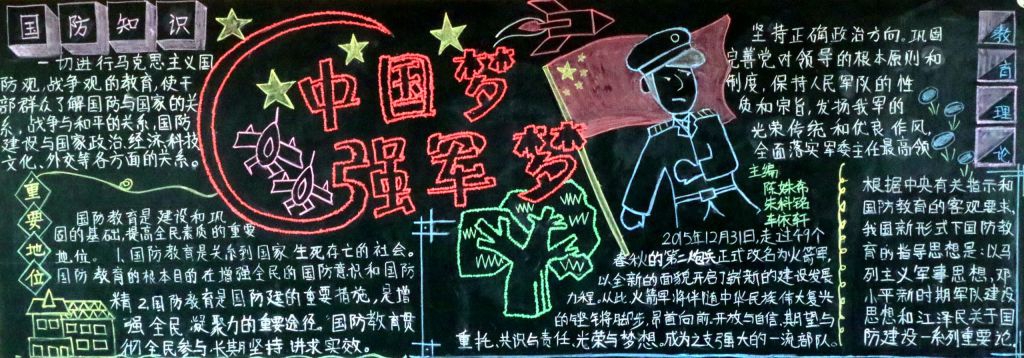 国防知识
一切进行马克思主义国
防观,战争观的教育,使干
部群众了解国防与国家的关
系,战争与和平的关系,国防
建设与国家政治、经济、科技
文化、外交等各方面的关系。
重要地位
国防教育是建设和巩
固的基础,提高全民素质的重要
地位。1.国防教育是关系到国家生死存亡的社会。
国防教育的根本目的在增强全民的国防意识和国防
精 2.国防教育是国防建的重要措施,是增
强全民凝聚力的重要途径。国防教育贯
彻全民参与、长期坚持、讲求实效。
中国梦
强军梦
坚持正确政治方向。巩固
完善党对领导的根本原则和
制度,保持人民军队的性
质和宗旨,发扬我军的
光荣传统和优良作风,
全面落实军委主任最高领
主编
陈姝希
朱科铭
2015年12月31日,走过49个
春秋的第二炮兵正式改名为火箭军,
以全新的面貌开启了崭新的建设发展
历程,从此火箭军将伴随中华民族伟大复兴
的铿锵脚步,昂首向前,开放与自信、期望与
重托、共识与责任、光荣与梦想。成为之支强大的一流部队。
教育理论
根据中央有关指示和
国防教育的客观要求,
我国新形式下国防教
育的指导思想是:以马
列主义军事思想,邓
小平新时期军队建设
思想和江泽民关于国
防建设一系列重要论